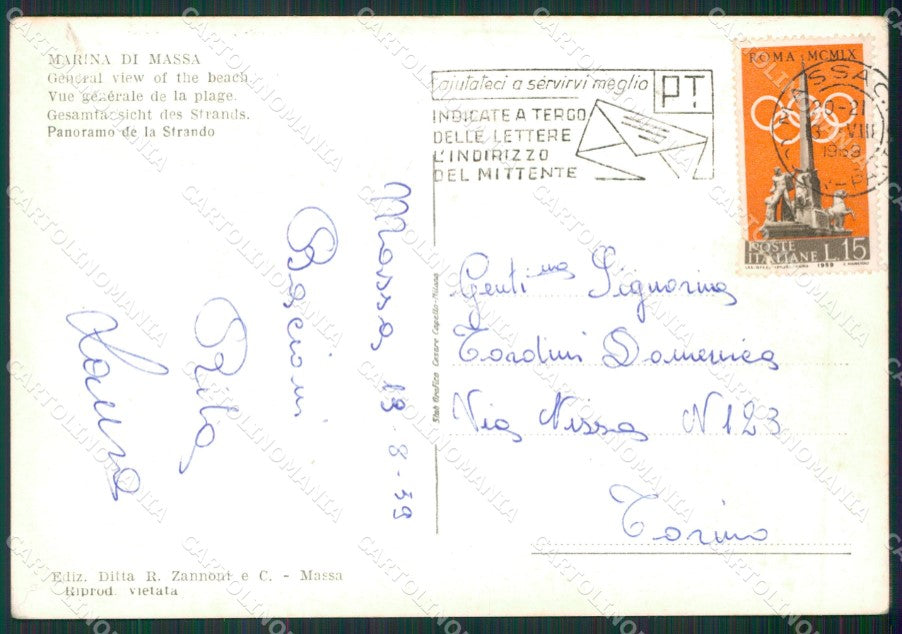 MARINA DI MASSA
General view of the beach.
Vue générale de la plage.
Gesamtfacsicht des Strands.
Panoramo de la Strando
ajutateci a servirvi meglio
PT
INDICATE A TERGO
DELLE LETTERE
L'INDIRIZZO
DEL MITTENTE
ROMA MCMLX
POSTE
ITALIANE L.15
1959
MASSA
20-21
VIII
1959
Massa 13-8-59
Bacioni
Rita
Laura
Stab. Grafico Cesare Capello-Milano
Gentima Signorina
Tordini Domenica
Via Nissa N 123
Torino
Ediz. Ditta R. Zannoni e C. - Massa
Riprod. vietata
CARTOLINOMANIA